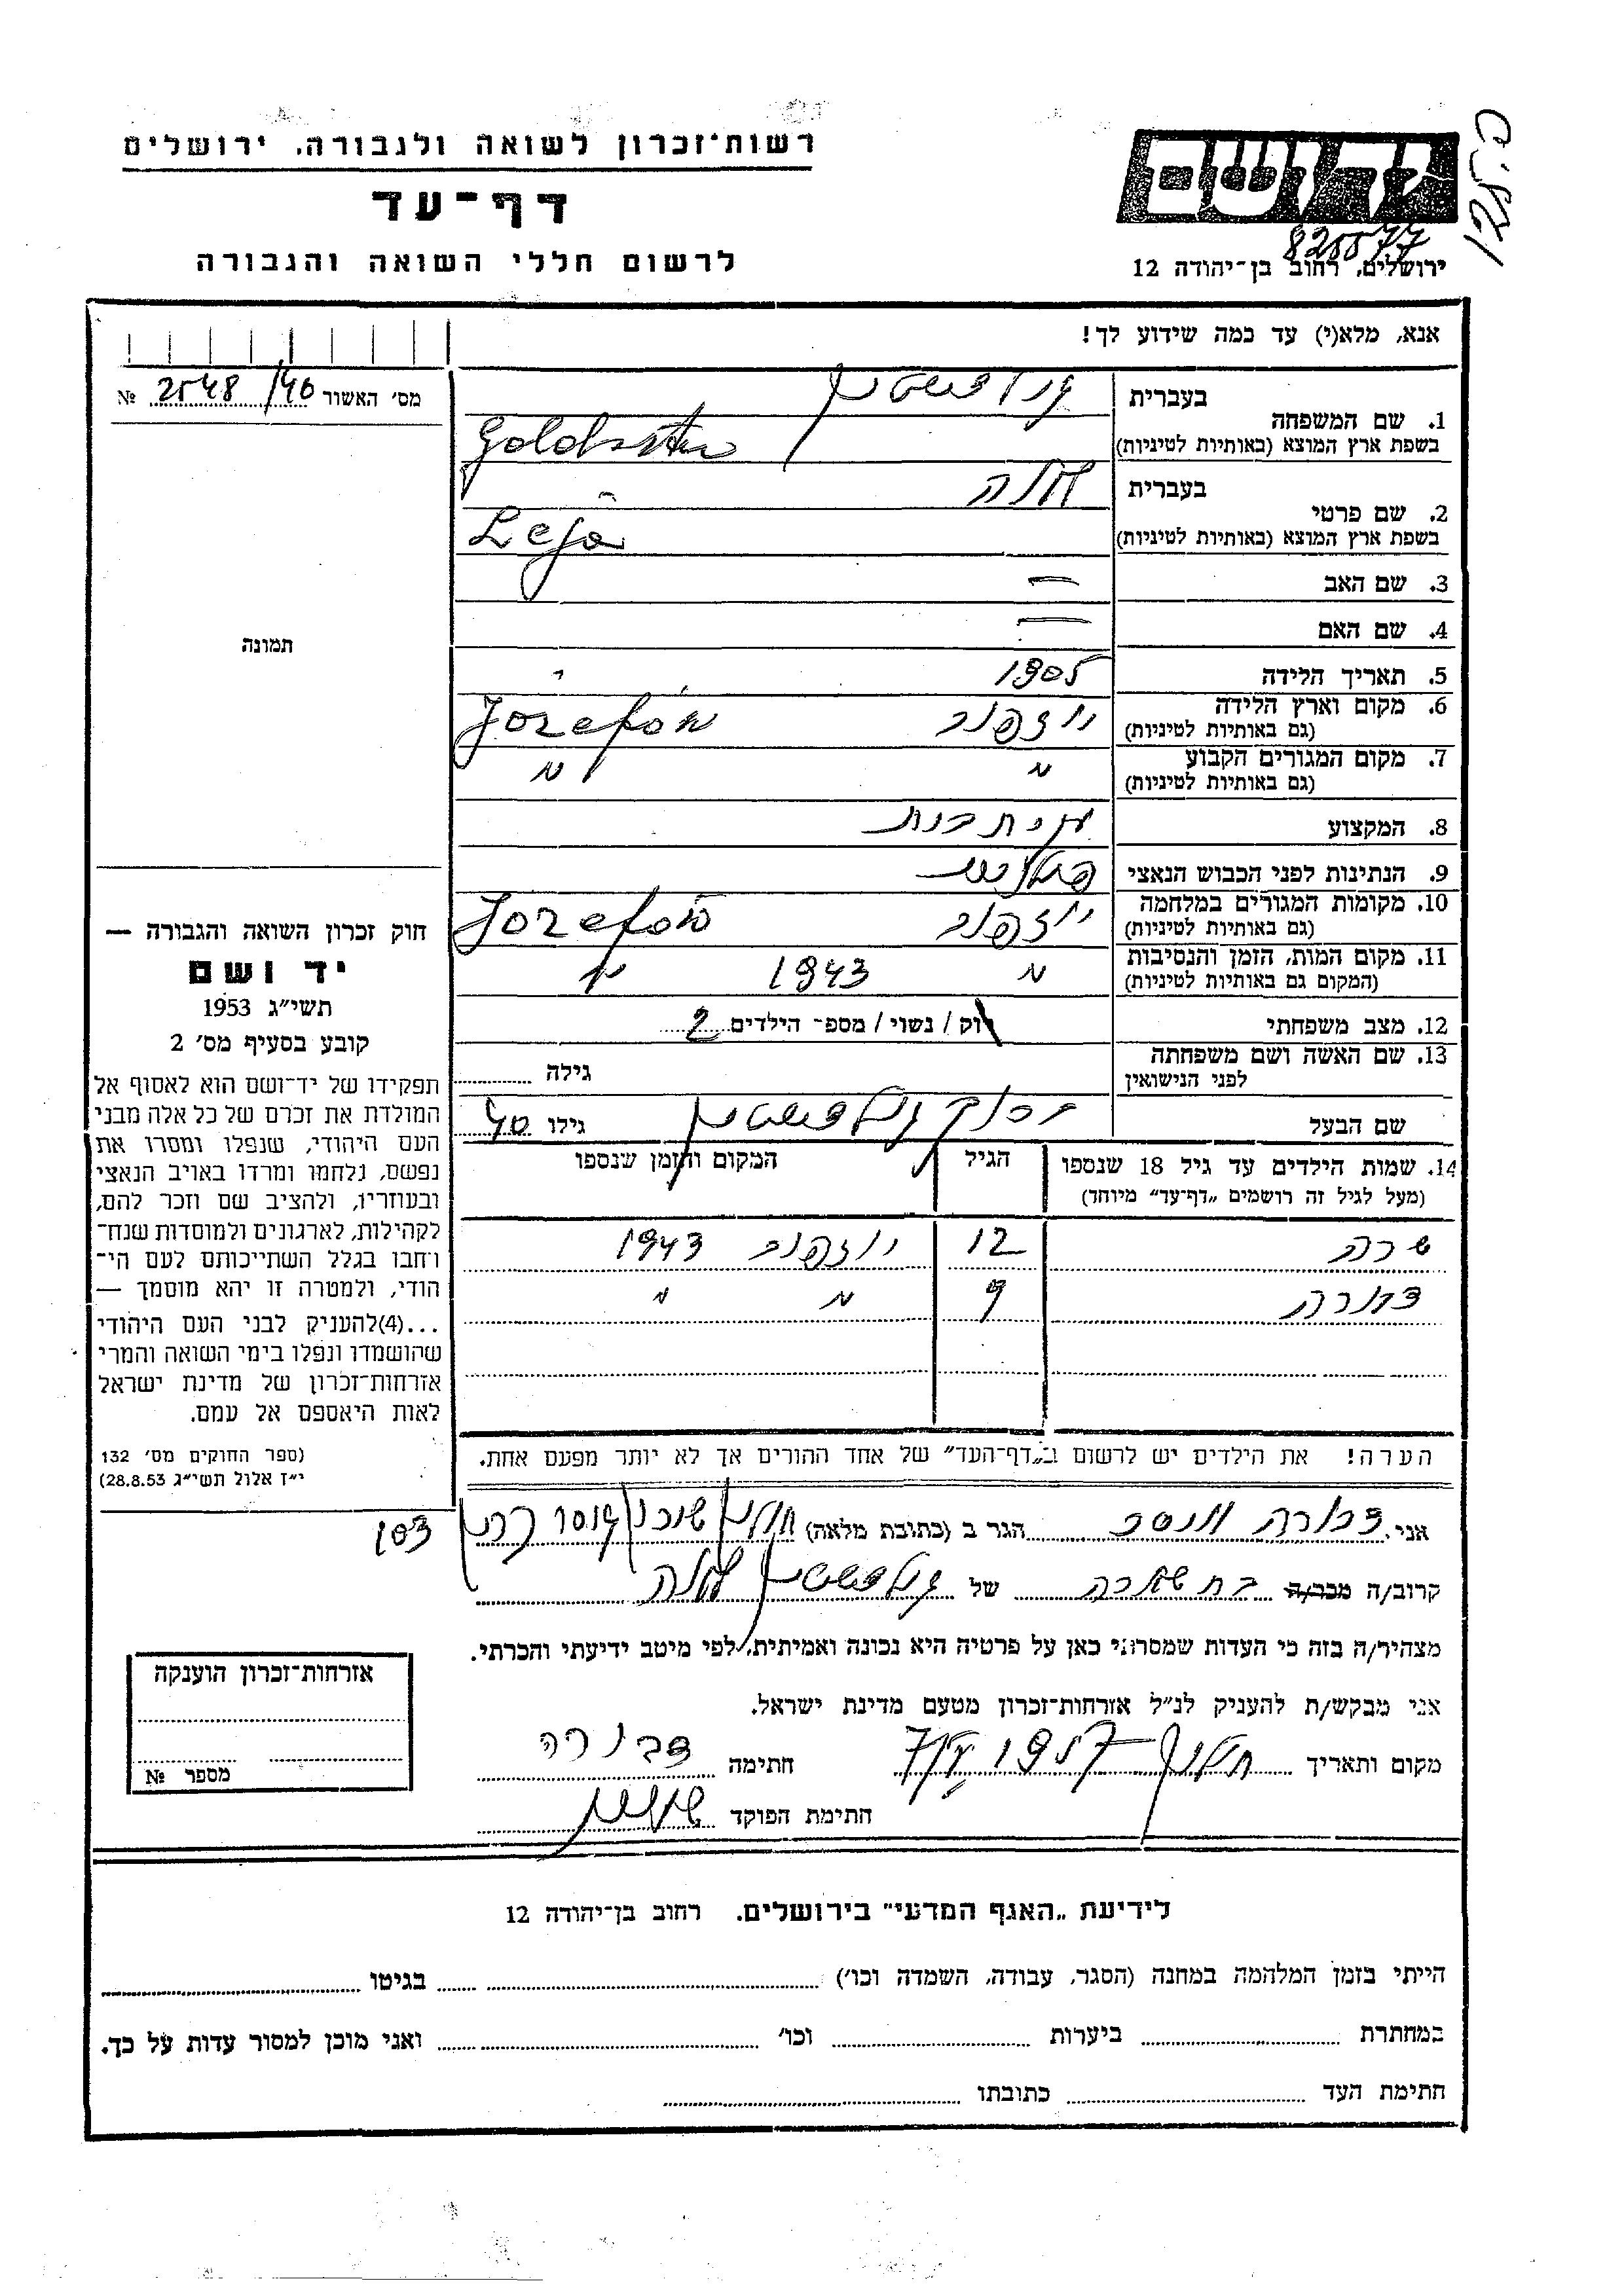 רשות־זכרון לשואה ולגבורה, ירושלים
דף־עד
לרשום חללי השואה והגבורה
יד ושם
ירושלים, רחוב בן־יהודה 12
אנא, מלא(י) עד כמה שידוע לך!
מס׳ האשור 2548/40 №
1. שם המשפחה
בעברית גולדשטיין
בשפת ארץ המוצא (באותיות לטיניות) Goldsztein
2. שם פרטי
בעברית לאה
בשפת ארץ המוצא (באותיות לטיניות) Leja
3. שם האב —
4. שם האם —
5. תאריך הלידה 1905
6. מקום וארץ הלידה יוזפוב Józefów
(גם באותיות לטיניות)
7. מקום המגורים הקבוע " "
(גם באותיות לטיניות)
8. המקצוע עקרת בית
9. הנתינות לפני הכבוש הנאצי פולנית
10. מקומות המגורים במלחמה יוזפוב Józefów
(גם באותיות לטיניות)
11. מקום המות, הזמן והנסיבות " 1943 "
(המקום גם באותיות לטיניות)
12. מצב משפחתי רוק / נשוי / מספ־ הילדים 2
13. שם האשה ושם משפחתה
לפני הנישואין גילה
שם הבעל ברוך גולדשטיין גילו 40
14. שמות הילדים עד גיל 18 שנספו הגיל המקום והזמן שנספו
(מעל לגיל זה רושמים „דף־עד״ מיוחד)
שרה 12 יוזפוב 1943
דבורה 9 " "
הערה! את הילדים יש לרשום ב„דף־העד״ של אחד ההורים אך לא יותר מפעם אחת.
אני דבורה הגר ב (כתובת מלאה) חולון שיכון 103
קרוב/ה מכר/ה של גולדשטיין לאה
מצהיר/ה בזה כי העדות שמסרתי כאן על פרטיה היא נכונה ואמיתית, לפי מיטב ידיעתי והכרתי.
אני מבקש/ת להעניק לנ״ל אזרחות־זכרון מטעם מדינת ישראל.
מקום ותאריך חולון חתימה דבורה
חתימת הפוקד
תמונה
חוק זכרון השואה והגבורה —
יד ושם
תשי״ג 1953
קובע בסעיף מס׳ 2
תפקידו של יד־ושם הוא לאסוף אל
המולדת את זכרם של כל אלה מבני
העם היהודי, שנפלו ומסרו את
נפשם, נלחמו ומרדו באויב הנאצי
ובעוזריו, ולהציב שם וזכר להם,
לקהילות, לארגונים ולמוסדות שנח־
רבו בגלל השתייכותם לעם הי־
הודי, ולמטרה זו יהא מוסמך —
...(4)להעניק לבני העם היהודי
שהושמדו ונפלו בימי השואה והמרי
אזרחות־זכרון של מדינת ישראל
לאות היאספם אל עמם.
(ספר החוקים מס׳ 132
י״ז אלול תשי״ג 28.8.53)
אזרחות־זכרון הוענקה
מספר №
לידיעת „האגף המדעי״ בירושלים. רחוב בן־יהודה 12
הייתי בזמן המלחמה במחנה (הסגר, עבודה, השמדה וכו׳) בגיטו
במחתרת ביערות וכו׳ ואני מוכן למסור עדות על כך.
חתימת העד כתובתו